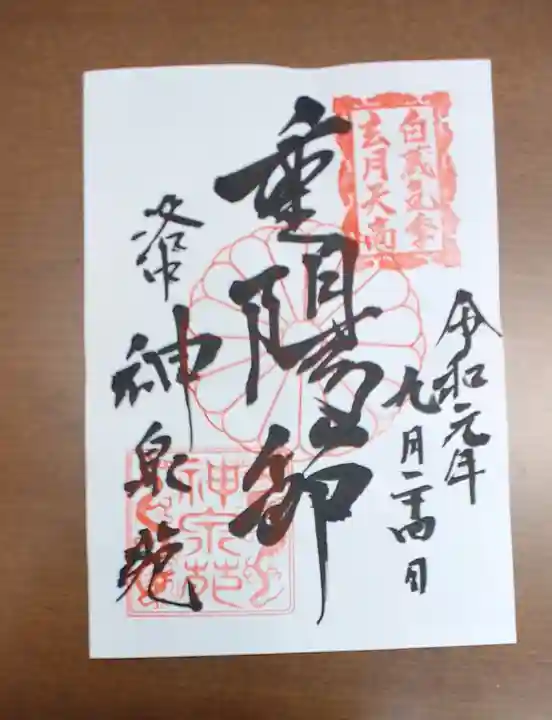 白蔵之季
玄月天高
令和元年
九月二十四日
重陽節
洛中
神泉苑
神泉苑